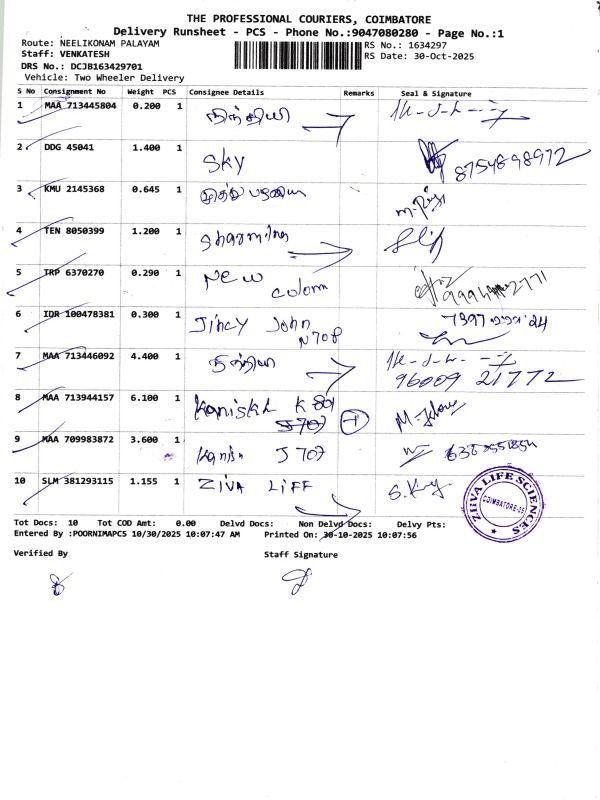 THE PROFESSIONAL COURIERS, COIMBATORE
Delivery Runsheet - PCS - Phone No.:9047080280 - Page No.:1
Route: NEELIKONAM PALAYAM
RS No.: 1634297
Staff: VENKATESH
RS Date: 30-Oct-2025
DRS No.: DCJB163429701
Vehicle: Two Wheeler Delivery
S No Consignment No Weight PCS Consignee Details Remarks Seal & Signature
1 MAA 713445804 0.200 1 நித்தியா
2 DDG 45041 1.400 1 SKY 8754898972
3 KMU 2145368 0.645 1
4 TEN 8050399 1.200 1 Sharmila
5 TRP 6370270 0.290 1 New Colony
6 IDR 100478381 0.300 1 Jincy John
N708
7 MAA 713446092 4.400 1 நித்தியா
96009 21772
8 MAA 713944157 6.100 1 Kanishk K
9 MAA 709983872 3.600 1 Kanis J 707
10 SLM 381293115 1.155 1 ZIVA LIFF
ZIIVA LIFE SCIENCES
COIMBATORE-35
Tot Docs: 10 Tot COD Amt: 0.00 Delvd Docs: Non Delvd Docs: Delvy Pts:
Entered By :POORNIMAPCS 10/30/2025 10:07:47 AM Printed On: 30-10-2025 10:07:56
Verified By Staff Signature